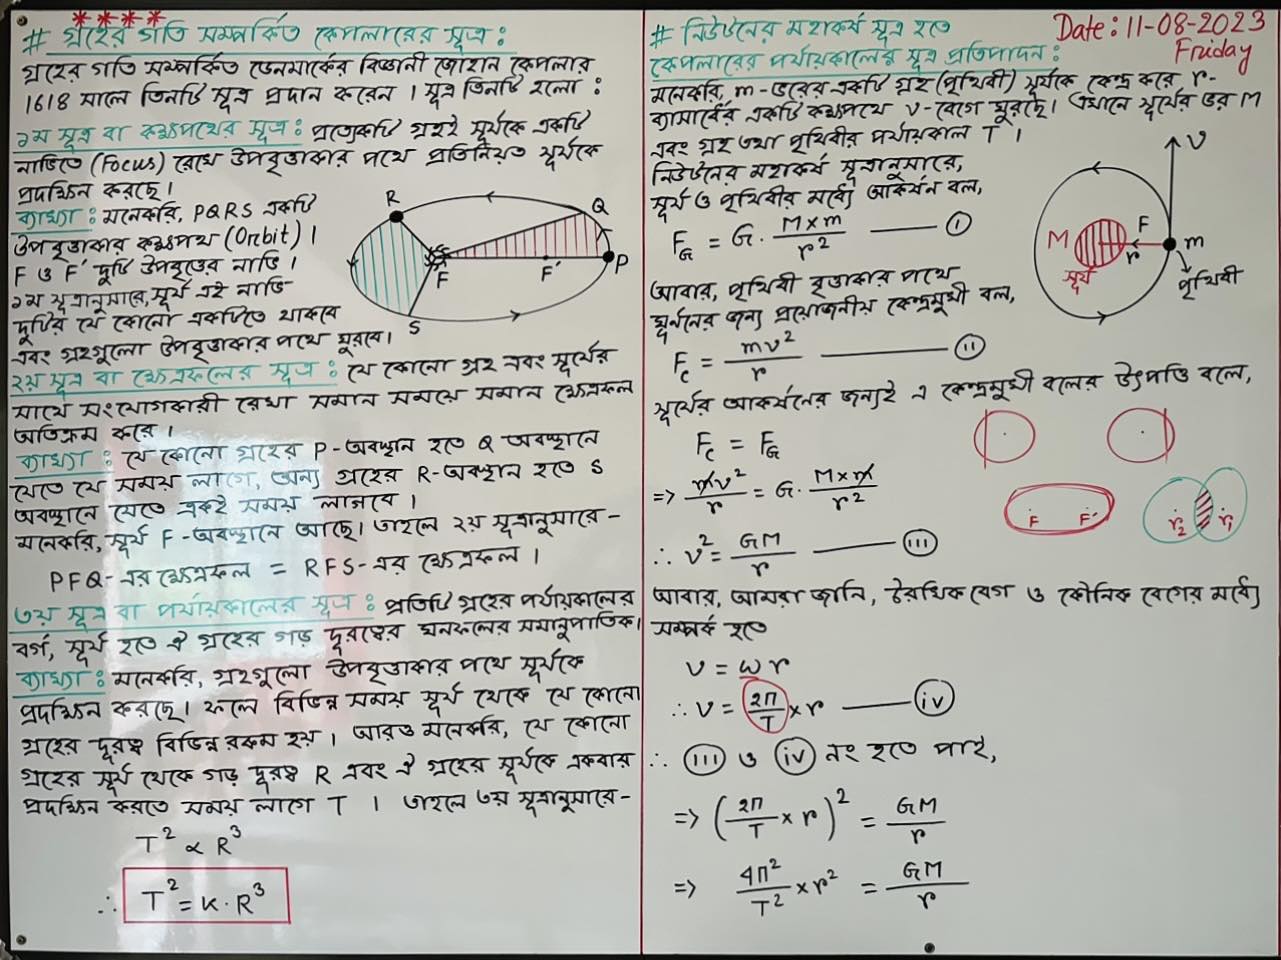 ****
# গ্রহের গতি সম্পর্কিত কেপলারের সূত্র :
গ্রহের গতি সম্পর্কিত ডেনমার্কের বিজ্ঞানী জোহান কেপলার
1618 সালে তিনটি সূত্র প্রদান করেন । সূত্র তিনটি হলো :
১ম সূত্র বা কক্ষপথের সূত্র : প্রত্যেকটি গ্রহই সূর্যকে একটি
নাভিতে (Focus) রেখে উপবৃত্তাকার পথে প্রতিনিয়ত সূর্যকে
প্রদক্ষিন করছে ।
ব্যাখ্যা : মনেকরি, PQRS একটি
উপবৃত্তাকার কক্ষপথ (Orbit) ।
F ও F' দুটি উপবৃত্তের নাভি ।
১ম সূত্রানুসারে, সূর্য এই নাভি
দুটির যে কোনো একটিতে থাকবে
এবং গ্রহগুলো উপবৃত্তাকার পথে ঘুরবে ।
R
Q
F
F'
P
S
২য় সূত্র বা ক্ষেত্রফলের সূত্র : যে কোনো গ্রহ এবং সূর্যের
সাথে সংযোগকারী রেখা সমান সময়ে সমান ক্ষেত্রফল
অতিক্রম করে ।
ব্যাখ্যা : যে কোনো গ্রহের P-অবস্থান হতে Q অবস্থানে
যেতে যে সময় লাগে, অন্য গ্রহের R-অবস্থান হতে S
অবস্থানে যেতে একই সময় লাগবে ।
মনেকরি, সূর্য F-অবস্থানে আছে । তাহলে ২য় সূত্রানুসারে-
PFQ-এর ক্ষেত্রফল = RFS-এর ক্ষেত্রফল ।
৩য় সূত্র বা পর্যায়কালের সূত্র : প্রতিটি গ্রহের পর্যায়কালের
বর্গ, সূর্য হতে ঐ গ্রহের গড় দূরত্বের ঘনফলের সমানুপাতিক ।
ব্যাখ্যা : মনেকরি, গ্রহগুলো উপবৃত্তাকার পথে সূর্যকে
প্রদক্ষিন করছে । ফলে বিভিন্ন সময় সূর্য থেকে যে কোনো
গ্রহের দূরত্ব বিভিন্ন রকম হয় । আরও মনেকরি, যে কোনো
গ্রহের সূর্য থেকে গড় দূরত্ব R এবং ঐ গ্রহের সূর্যকে একবার
প্রদক্ষিন করতে সময় লাগে T । তাহলে ৩য় সূত্রানুসারে-
T² ∝ R³
∴ T² = K . R³
Date : 11-08-2023
Friday
# নিউটনের মহাকর্ষ সূত্র হতে
কেপলারের পর্যায়কালের সূত্র প্রতিপাদন :
মনেকরি, m-ভরের একটি গ্রহ (পৃথিবী) সূর্যকে কেন্দ্র করে r-
ব্যাসার্ধের একটি কক্ষপথে v-বেগে ঘুরছে । এখানে সূর্যের ভর M
এবং গ্রহ তথা পৃথিবীর পর্যায়কাল T ।
নিউটনের মহাকর্ষ সূত্রানুসারে,
সূর্য ও পৃথিবীর মধ্যে আকর্ষন বল,
F_G = G . M×m/r² —— (I)
আবার, পৃথিবী বৃত্তাকার পথে
ঘূর্ননের জন্য প্রয়োজনীয় কেন্দ্রমুখী বল,
F_C = mv²/r —— (II)
v
M
F
r
m
সূর্য
পৃথিবী
সূর্যের আকর্ষনের জন্যই এ কেন্দ্রমুখী বলের উৎপত্তি বলে,
F_C = F_G
=> mv²/r = G . M×m/r²
∴ v² = GM/r —— (III)
F F'
r₂ r₁
আবার, আমরা জানি, রৈখিক বেগ ও কৌনিক বেগের মধ্যে
সম্পর্ক হতে
v = ωr
∴ v = 2π/T × r —— (iv)
∴ (III) ও (iv) নং হতে পাই,
=> (2π/T × r)² = GM/r
=> 4π²/T² × r² = GM/r